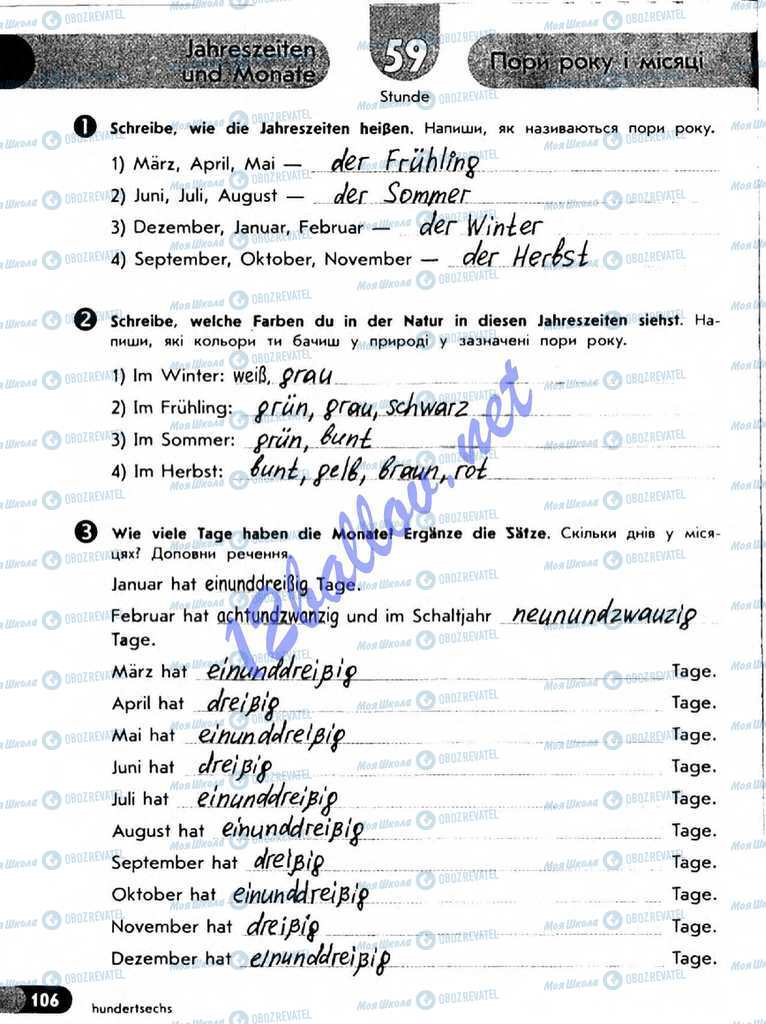 Jahreszeiten
und Monate
59
Stunde
Пори року і місяці
1 Schreibe, wie die Jahreszeiten heißen. Напиши, як називаються пори року.
1) März, April, Mai — der Frühling
2) Juni, Juli, August — der Sommer
3) Dezember, Januar, Februar — der Winter
4) September, Oktober, November — der Herbst
2 Schreibe, welche Farben du in der Natur in diesen Jahreszeiten siehst. На-
пиши, які кольори ти бачиш у природі у зазначені пори року.
1) Im Winter: weiß, grau
2) Im Frühling: grün, grau, schwarz
3) Im Sommer: grün, bunt
4) Im Herbst: bunt, gelb, braun, rot
3 Wie viele Tage haben die Monate! Ergänze die Sätze. Скільки днів у міся-
цях? Доповни речення.
Januar hat einunddreißig Tage.
Februar hat achtundzwanzig und im Schaltjahr neunundzwauzig
Tage.
März hat einunddreißig Tage.
April hat dreißig Tage.
Mai hat einunddreißig Tage.
Juni hat dreißig Tage.
Juli hat einunddreißig Tage.
August hat einunddreißig Tage.
September hat dreißig Tage.
Oktober hat einunddreißig Tage.
November hat dreißig Tage.
Dezember hat einunddreißig Tage.
106
hundertsechs
12ballov.net
Моя Школа OBOZREVATEL